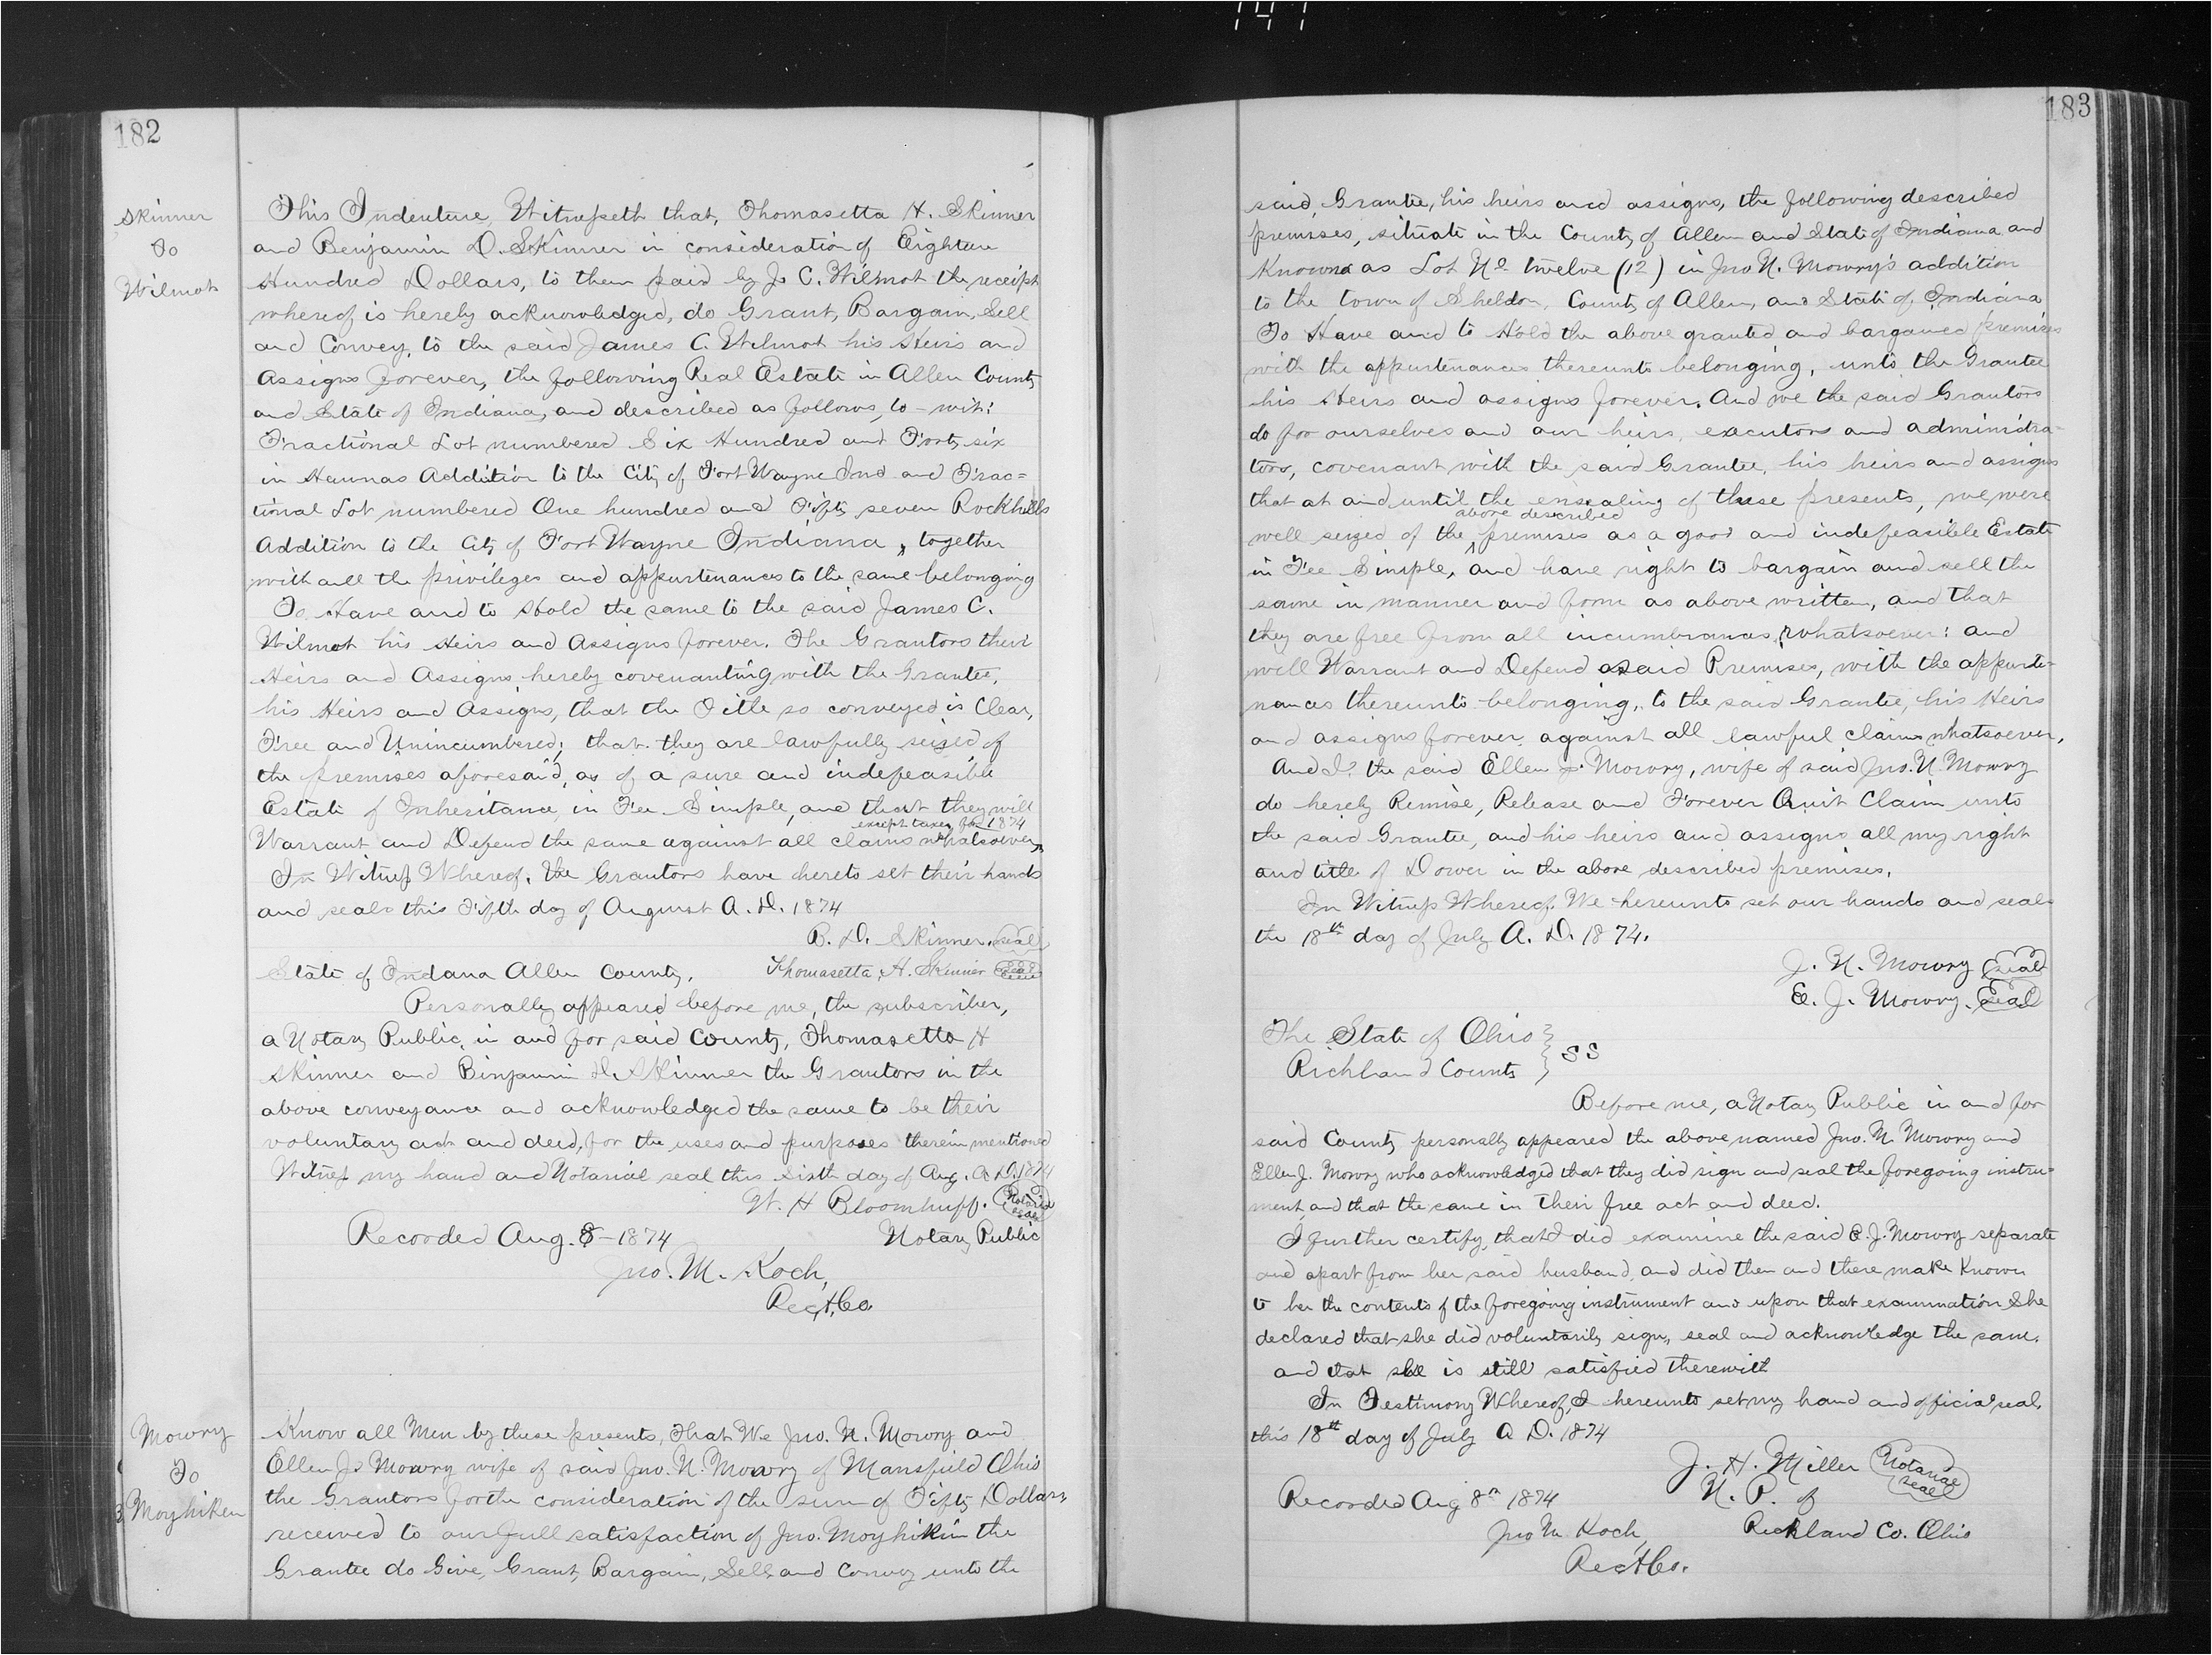 182
Skinner
To
Wilmot
This Indenture Witnesseth that, Thomasetta H. Skinner
and Benjamin D. Skinner in consideration of Eighteen
Hundred Dollars, to them paid by Js C. Wilmot the receipt
whereof is hereby acknowledged, do Grant, Bargain, Sell
and Convey, to the said James C. Wilmot his Heirs and
Assigns forever, the following Real Estate in Allen County
and State of Indiana, and described as follows, to-wit:
Fractional Lot numbered Six Hundred and Forty six
in Hannas Addition to the City of Fort Wayne Ind and Frac=
tional Lot numbered One hundred and Fifty seven Rockhills
Addition to the City of Fort Wayne Indiana, together
with all the privileges and appurtenances to the same belonging
To Have and to Hold the same to the said James C.
Wilmot his Heirs and Assigns forever. The Grantors their
Heirs and Assigns, hereby covenanting with the Grantee,
his Heirs and Assigns, that the Title so conveyed is Clear,
Free and Unincumbered; that they are lawfully seized of
the premises aforesaid, as of a sure and indefeasible
Estate of Inheritance, in Fee Simple, and that they will
except taxes for 1874
Warrant and Defend the same against all claims whatsoever
In Witness Whereof, the Grantors have hereto set their hands
and seals this Fifth day of August A. D. 1874
B. D. Skinner. seal
State of Indana Allen County. Thomasetta H. Skinner seal
Personally appeared before me, the subscriber,
a Notary Public, in and for said County, Thomasetta H
Skinner and Binjamin D. Skinner the Grantors in the
above conveyance and acknowledged the same to be their
voluntary act and deed, for the uses and purposes therein mentioned
Witness my hand and Notarial seal this Sixth day of Aug. A D. 1874
W. H Bloomhuff. Notarial seal
Recorded Aug. 8 - 1874 Notary Public
Jno. M. Koch,
Rec A. Co.
Mowry
To
Moyhiken
Know all Men by these presents, That We Jno. N. Mowry and
Ellen J. Mowry wife of said Jno. N. Mowry of Mansfield Ohio
the Grantors for the consideration of the sum of Fifty Dollars
received to our full satisfaction of Jno. Moyhikin the
Grantee do Give, Grant, Bargain, Sell and Convey unto the
183
said, Grantee, his heirs and assigns, the following described
premises, situate in the County of Allen and State of Indiana and
Known as Lot No. twelve (12) in Jno N. Mowry's addition
to the town of Sheldon, County of Allen, and State of Indiana
To Have and to Hold the above granted and bargained premises
with the appurtenances thereunto belonging, unto the Grantee
his Heirs and assigns forever. And we the said Grantors
do for ourselves and our heirs, executors and administra=
tors, covenant with the said Grantee, his heirs and assigns
that at and until the ensealing of these presents, we were
above described
well seized of the premises as a good and indefeasible Estate
in Fee Simple, and have right to bargain and sell the
same in manner and form as above written, and that
they are free from all incumbrances whatsoever: and
will Warrant and Defend said Premises, with the appurte-
nances thereunto belonging, to the said Grantee, his Heirs
and assigns forever, against all lawful claims whatsoever,
And I the said Ellen J. Mowry, wife of said Jno. N. Mowry
do hereby Remise, Release and Forever Quit Claim unto
the said Grantee, and his heirs and assigns all my right
and title of Dower in the above described premises.
In Witness Whereof We hereunto set our hands and seals
the 18th day of July A. D. 1874.
J. N. Mowry seal
E. J. Mowry. Seal
The State of Ohio } SS
Richland County
Before me, a Notary Public in and for
said County personally appeared the above named Jno. N. Mowry and
Ellen J. Mowry who acknowledged that they did sign and seal the foregoing instru=
ment, and that the same in their free act and deed.
I further certify, that I did examine the said E. J. Mowry separate
and apart from her said husband, and did then and there make Known
to her the contents of the foregoing instrument and upon that examination She
declared that she did voluntarily sign, seal and acknowledge the same.
and that she is still satisfied therewith
In Testimony Whereof, I hereunto set my hand and official seal,
this 18th day of July A D. 1874
J. H. Miller Notarial seal
Recorded Aug 8th 1874 N. P. of
Jno M Koch, Richland Co. Ohio
Rec A Co.